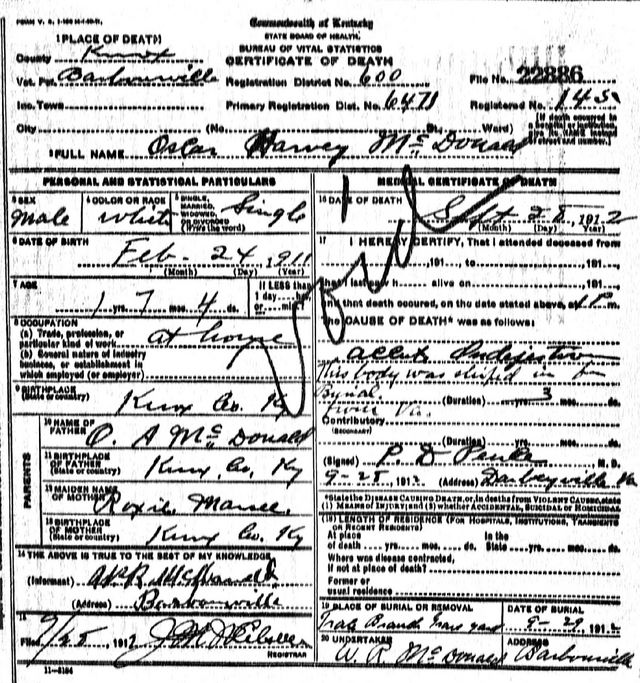 Commonwealth of Kentucky
STATE BOARD OF HEALTH.
BUREAU OF VITAL STATISTICS
CERTIFICATE OF DEATH
1 PLACE OF DEATH
County Knox
Vot. Pct. Barbourville
Registration District No. 600
File No. 22886
Inc. Town
Primary Registration Dist. No. 6471
Registered No. 145
City (No. St., Ward)
(If death occurred in
a hospital or institution,
give its NAME instead
of street and number.)
2 FULL NAME Oscar Harvey McDonald
PERSONAL AND STATISTICAL PARTICULARS
3 SEX
Male
4 COLOR OR RACE
White
5 SINGLE,
MARRIED,
WIDOWED
OR DIVORCED
(Write the word)
Single
6 DATE OF BIRTH
Feb. 24 1911
(Month) (Day) (Year)
7 AGE
1 yrs. 7 mos. 4 ds.
If LESS than
1 day hrs.
or min.?
8 OCCUPATION
(a) Trade, profession, or
particular kind of work
at home
(b) General nature of industry
business, or establishment in
which employed (or employer)
9 BIRTHPLACE
(State or country)
Knox Co. Ky
PARENTS
10 NAME OF
FATHER
O. A McDonald
11 BIRTHPLACE
OF FATHER
(State or country)
Knox, Co, Ky
12 MAIDEN NAME
OF MOTHER
Roxie
13 BIRTHPLACE
OF MOTHER
(State or country)
Knox Co. Ky
14 THE ABOVE IS TRUE TO THE BEST OF MY KNOWLEDGE
(Informant) McDonald
(Address) Barbourville
15
Filed 9/28 1912
REGISTRAR
11-3184
MEDICAL CERTIFICATE OF DEATH
16 DATE OF DEATH
Sept 28, 1912
(Month) (Day) (Year)
17 I HEREBY CERTIFY, That I attended deceased from
, 191 to , 191 ,
that I last saw h alive on , 191 ,
and that death occurred, on the date stated above, at P m.
The CAUSE OF DEATH* was as follows:
Indigestion
This body was shiped in for
Burial.
from Va.
(Duration) yrs. 3 mos. ds.
Contributory
(SECONDARY)
(Duration) yrs. mos. ds.
(Signed) P. D M. D.
9-28, 1912 (Address)
*State the DISEASE CAUSING DEATH, or, in deaths from VIOLENT CAUSES, state
(1) MEANS OF INJURY; and (2) whether ACCIDENTAL, SUICIDAL or HOMICIDAL
(18) LENGTH OF RESIDENCE (FOR HOSPITALS, INSTITUTIONS, TRANSIENTS
OR RECENT RESIDENTS)
At place
of death yrs. mos. ds.
In the
State yrs. mos. ds.
Where was disease contracted,
if not at place of death?
Former or
usual residence
19 PLACE OF BURIAL OR REMOVAL
Branch Grave yard
DATE OF BURIAL
9-29 1912
20 UNDERTAKER
W. R. McDonald
ADDRESS
Barbourville